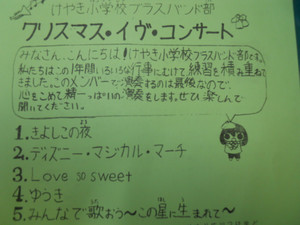 けやき小学校ブラスバンド部
クリスマス・イヴ・コンサート
みなさん、こんにちは！けやき小学校ブラスバンド部です。
私たちはこの1年間いろいろな行事にむけて練習を積み重ねて
きました。このメンバーで演奏するのは最後なので、
心をこめて精一っぱいの演奏をします。ぜひ楽しんで
聞いてください。
1.きよしこの夜
2.ディズニー・マジカル・マーチ
3.Love so sweet
4.ゆうき
5.みんなで歌おう〜この星に生まれて〜